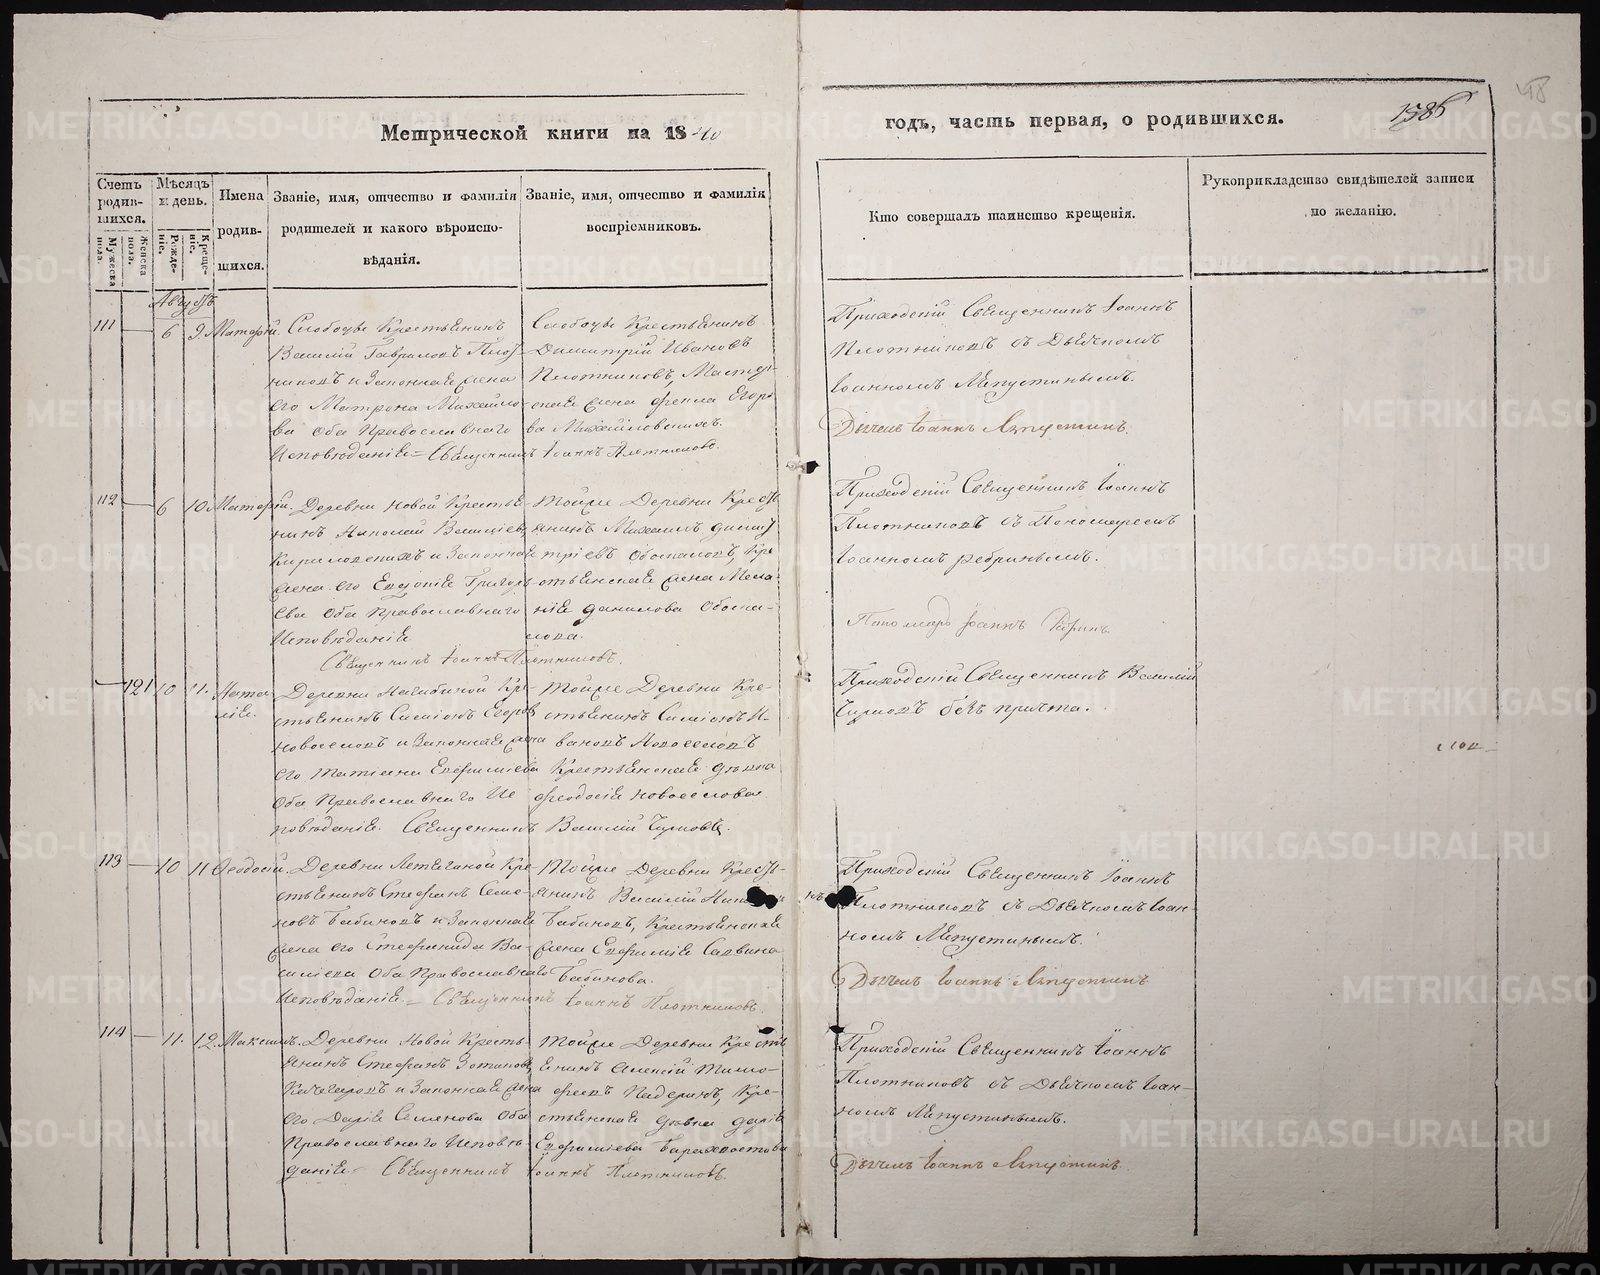 Метрической книги на 1840
годъ, часть первая, о родившихся.
1586
48
Счетъ родив-шихся.
Мужеска пола.
Женска пола.
Мѣсяцъ и день.
Рожде-ніе.
Креще-ніе.
Имена родив-шихся.
Званіе, имя, отчество и фамилія
родителей и какого вѣроиспо-
вѣданія.
Званіе, имя, отчество и фамилія
воспріемниковъ.
Кто совершалъ таинство крещенія.
Рукоприкладство свидѣтелей записи
по желанію.
Августъ
111
6
9.
Матфій.
Слободы Крестьянинъ
Василій Гавриловъ Плот-
никовъ и Законная жена
его Матрона Михайло-
ва Оба Православнаго
Исповѣданія = Священникъ Іоаннъ Плотниковъ.
Слободы Крестьянинъ
Димитрій Ивановъ
Плотниковъ,
жена Фекла Егоро-
ва
Приходскій Священникъ Іоаннъ
Плотниковъ съ Дьячкомъ
Іоанномъ
Дьячекъ Іоаннъ
112
6
10.
Матфій.
Деревни Новой Крестья-
нинъ Николай Васильевъ
и Законная
жена его Евдокія Григорь-
ева Оба Православнаго
Исповѣданія
Священникъ Іоаннъ Плотниковъ.
Тойже Деревни Кресть-
янинъ Михаилъ Дими-
тріевъ Обоскаловъ, Кре-
стьянская жена Мела-
нія Данилова Обоска-
лова.
Приходскій Священникъ Іоаннъ
Плотниковъ съ Пономаремъ
Іоанномъ Ребринымъ.
Пономарь Іоаннъ Ребринъ
121
10
11.
Ната-
лія.
Деревни Нагибиной Кре-
стьянинъ Симіонъ Егоровъ
Новоселовъ и Законная жена
его Татіана Евфиміева
Оба Православнаго Ис-
повѣданія. Священникъ Василій Чирковъ.
Тойже Деревни Кре-
стьянинъ Симіонъ И-
вановъ Новоселовъ
Крестьянская дѣвка
Феодосія Новоселова.
Приходскій Священникъ Василій
Чирковъ безъ причта.
113
10
11
Феодосій.
Деревни Кре-
стьянинъ Стефанъ Семе-
новъ Бабиновъ и Законная
жена его Стефанида Ва-
силіева Оба Православнаго
Исповѣданія. = Священникъ Іоаннъ Плотниковъ.
Тойже Деревни Кресть-
янинъ Василій
Бабиновъ, Крестьянская
жена Евфимія Саввина
Бабинова.
Приходскій Священникъ Іоаннъ
Плотниковъ съ Дьячкомъ Іоан-
номъ
Дьячекъ Іоаннъ
114
11.
12.
Максимъ.
Деревни Новой Кресть-
янинъ Стефанъ
и Законная жена
его Дарія Семенова Оба
Православнаго Исповѣ-
данія = Священникъ Іоаннъ Плотниковъ.
Тойже Деревни Кресть-
янинъ Алексій Тимо-
феевъ Падеринъ, Кре-
стьянская дѣвка Дарія
Евфиміева
Приходскій Священникъ Іоаннъ
Плотниковъ съ Дьячкомъ Іоан-
номъ
Дьячекъ Іоаннъ
METRIKI.GASO-URAL.RU